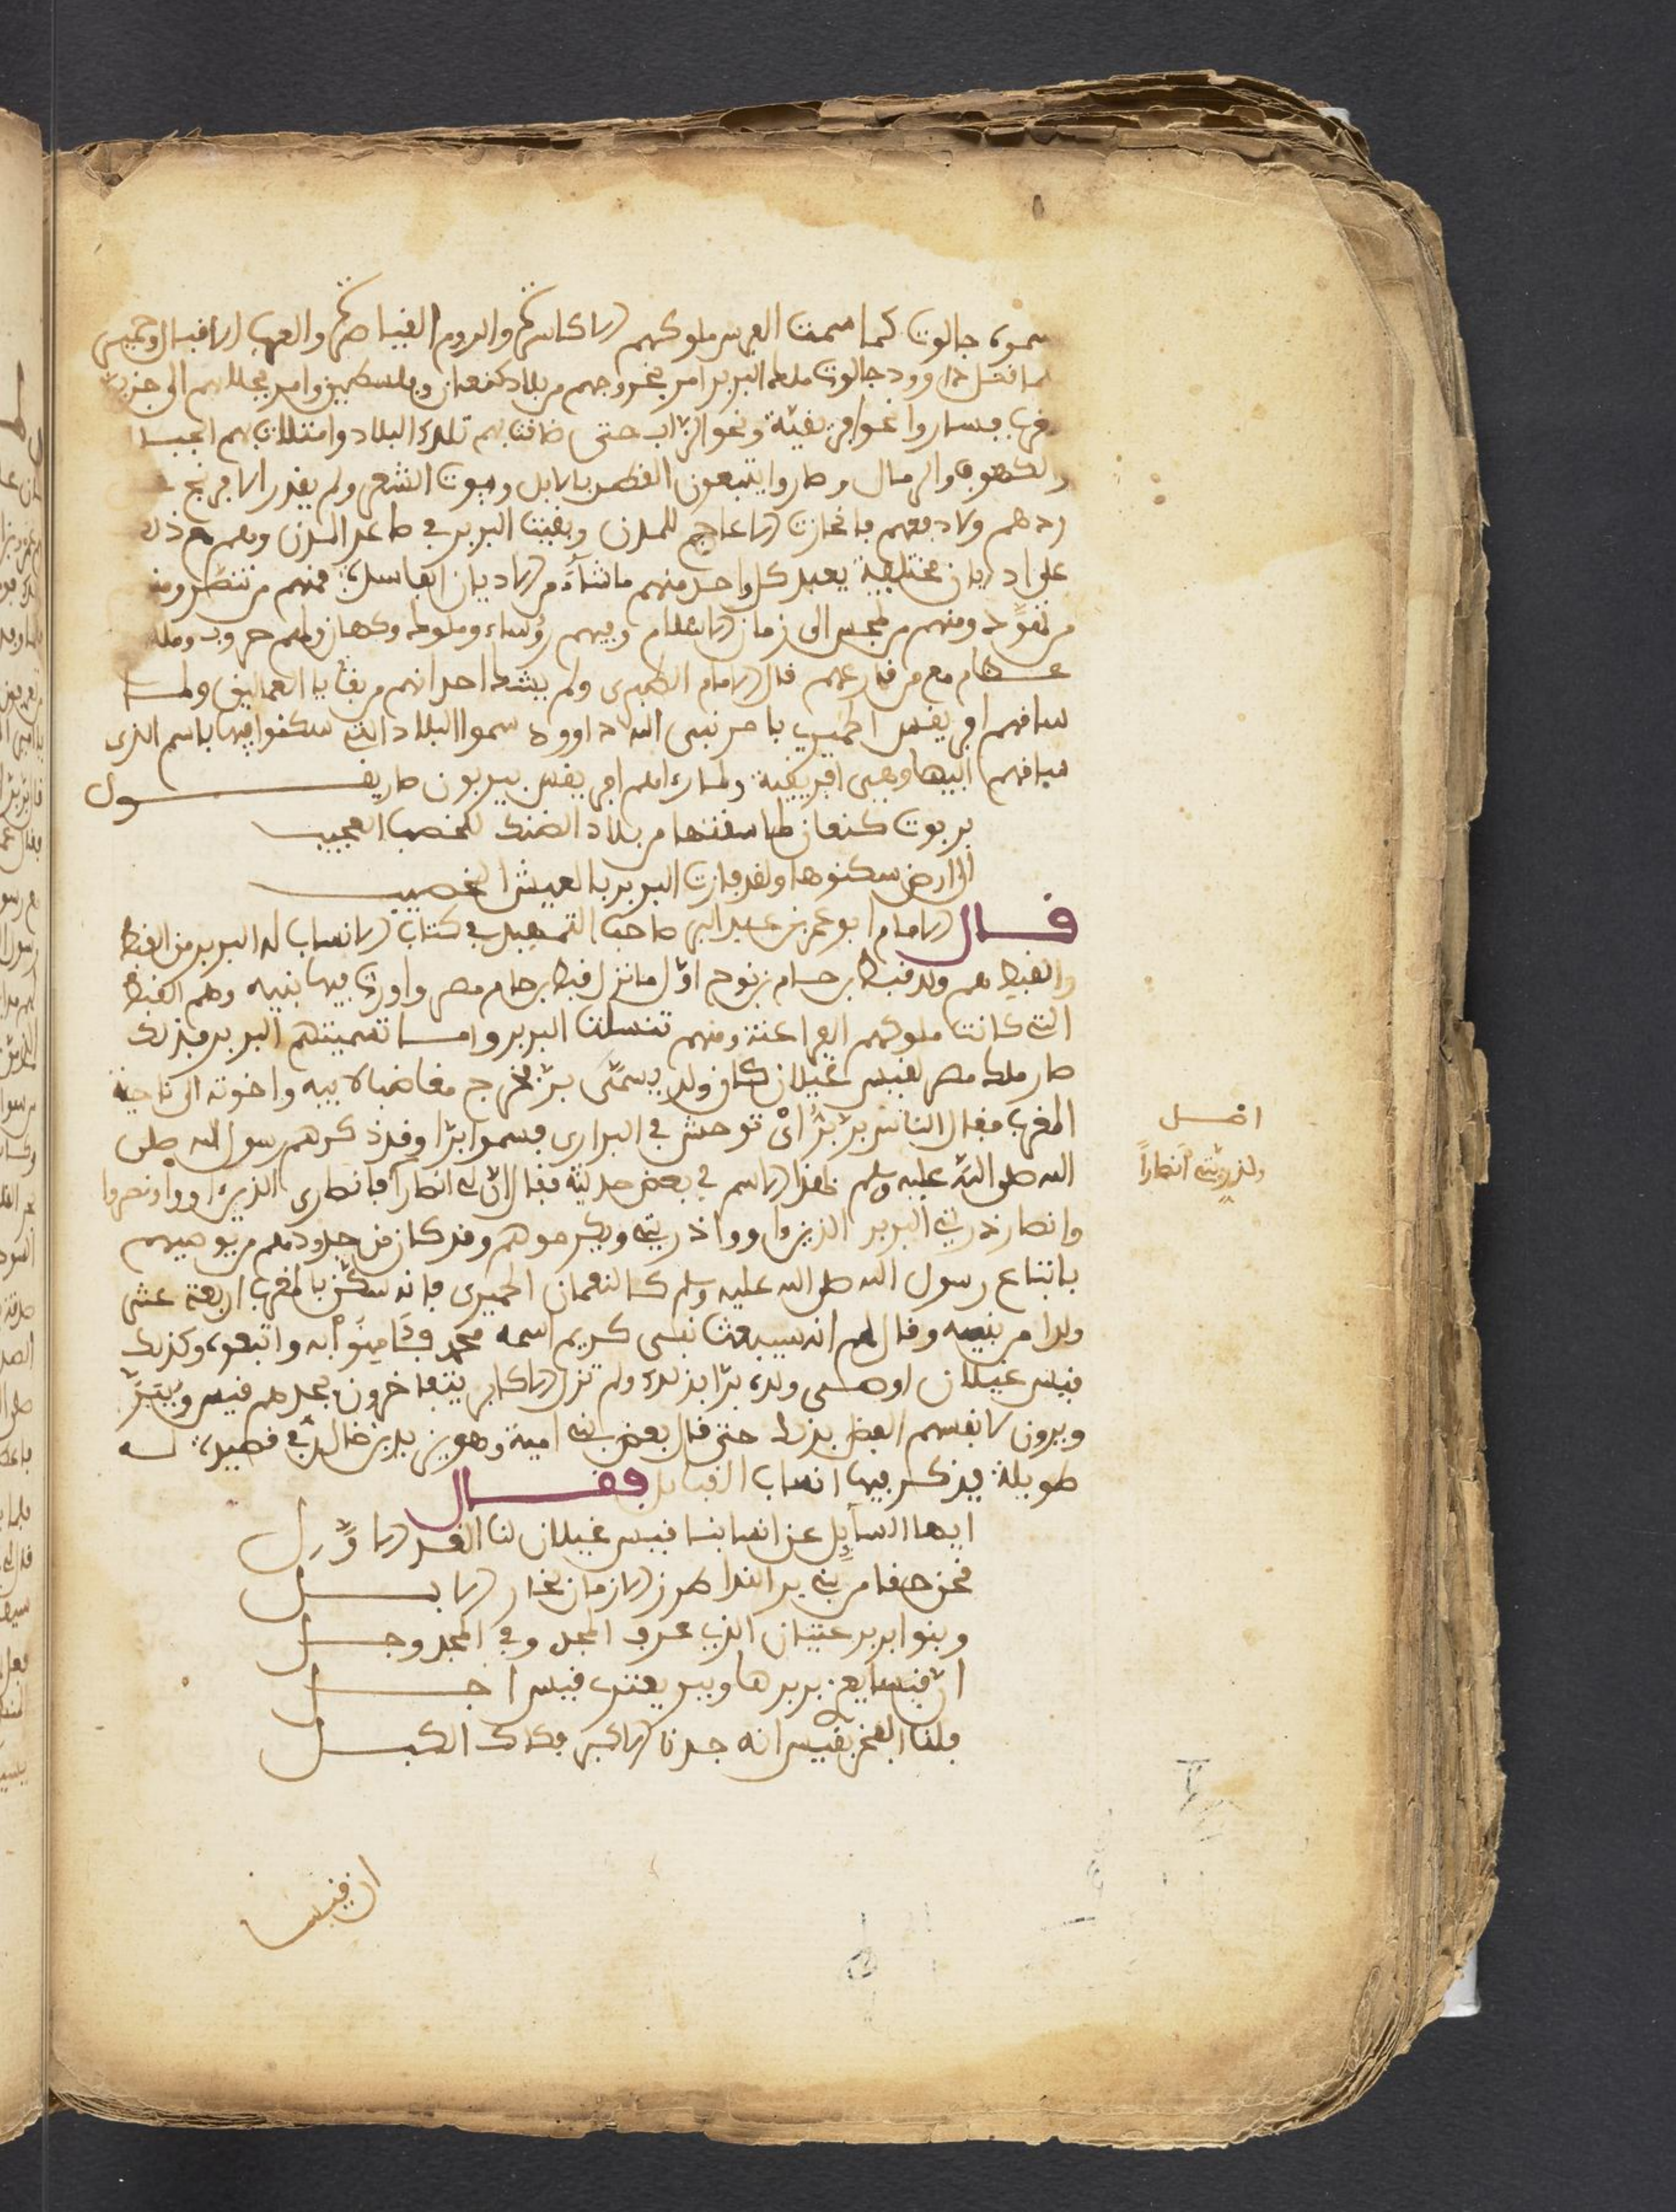 سموه جالوت كما سمت الفرس ملوكهم الاكاسرة والروم القياصرة والعرب الاقيال وحمير
لما قتل داوود جالوت ملك البربر امر بخروجهم من بلاد كنعان وفلسطين وامر بجلائهم الى جزيرة
المغرب فساروا نحو افريقية ونحو الزاب حتى ضاقت بهم تلك البلاد وامتلات بهم الجبال
والكهوف والرمال وصاروا يتبعون القطر بالابل وبيوت الشعر ولم يقدر الافرنج على
ردهم ولا دفعهم فانحازت الاعاجم للمدن وبقيت البربر في ما عدا المدن وهم مع ذلك
على اديان مختلفة يعبد كل واحد منهم ما شاء من الاديان الفاسدة فمنهم من تنصر ومنهم
من تهود ومنهم من تمجس الى زمان الاسلام وفيهم رؤساء وملوك وكهان ولهم حروب وملاحم
عظام مع من قارعهم قال الامام الطبري ولم يشك احد انهم من بقايا العماليق ولما
ساقهم افريقس الحميري بامر نبي الله داوود سموا البلاد التي سكنوا فيها باسم الذي
ساقهم اليها وهي افريقية ولما راهم افريقس يبربون صار يقول
بربرت كنعان لما سقتها من بلاد الضنك للخصب العجيب
الى ارض سكنوها ولقد فازت البربر بالعيش الخصيب
قال الامام ابو عمر بن عبد البر صاحب التمهيد في كتاب الانساب له البربر من القبط
والقبط هم ولد قبط بن حام بن نوح اول ما نزل قبط بن حام مصر واورث فيها بنيه وهم القبط
التي كانت ملوكهم الفراعنة ومنهم تنسلت البربر واما تسميتهم البربر فبذلك
صار ملك مصر لقيس غيلان كان ولد يسمى بر فخرج مغاضبا لابيه واخوته الى ناحية
المغرب فقال الناس بر بر اي توحش في البراري فسموا برا وقد ذكرهم رسول الله صلى
الله صلى الله عليه وسلم بهذا الاسم في بعض حديثه فقال ان لي انصارا فانصاري الذين اووا ونصروا
وانصار ذريتي البربر الذين اووا ذريتي ويكرموهم وقد كان من جدودهم من يوصيهم
باتباع رسول الله صلى الله عليه وسلم كالنعمان الحميري فانه سكن بالمغرب اربعة عشر
ولدا من بنيه وقال لهم انه سيبعث نبي كريم اسمه محمد فـامنوا به واتبعوه وكذلك
قيس غيلان اوصى ولده برا بذلك ولم تزل الاكابر يتفاخرون بجدهم قيس وببر
ويرون لانفسهم الفضل بذلك حتى قال بعض بني امية وهو يزيد بن خالد في قصيدة له
طويلة يذكر فيها انساب القبائل فقال
ايها السايل عن انسابنا قيس غيلان لنا الفد الاول
نحن صفا من بني بر الندا طرز الازمان نحار الابل
وبنوا بربر عتيان الذي عرف المجد وفي المجد وحل
ان قيسا يعز بربرها وببر يعتز قيس اجل
فلنا الفخر بقيس انه جدنا الاكبر فكاك الكبل
ان قيسا
اصل
ولذريتي انصارا